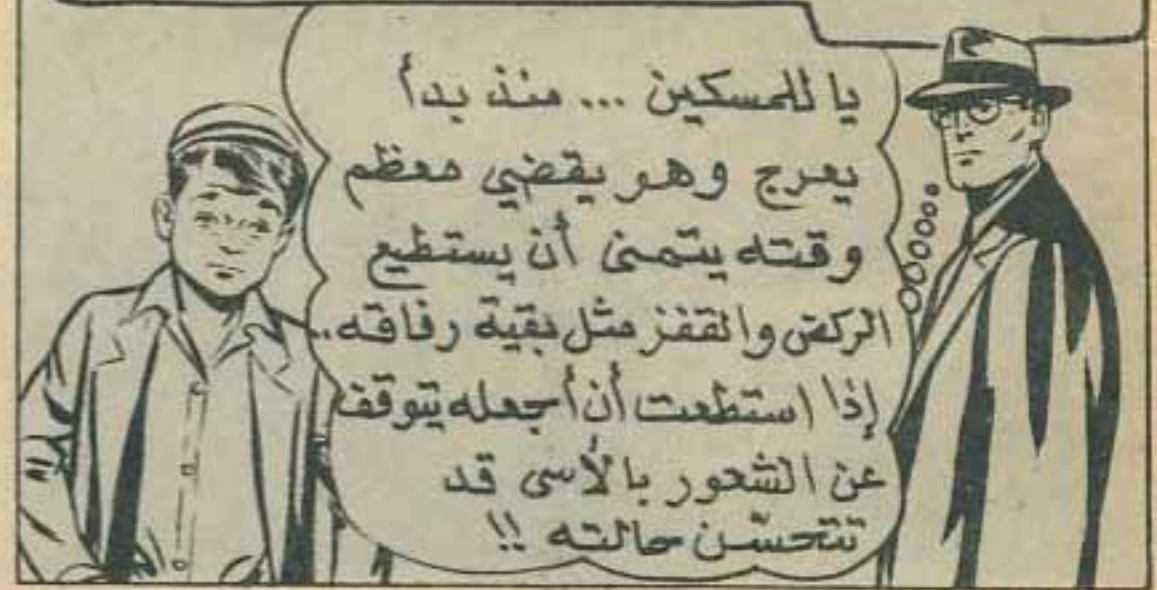 يا للمسكين ... منذ بدأ
يعرج وهو يقضي معظم
وقته يتمنى أن يستطيع
الركض والقفز مثل بقية رفاقه..
إذا استطعت أن أجعله يتوقف
عن الشعور بالأسى قد
تتحسّن حالته !!